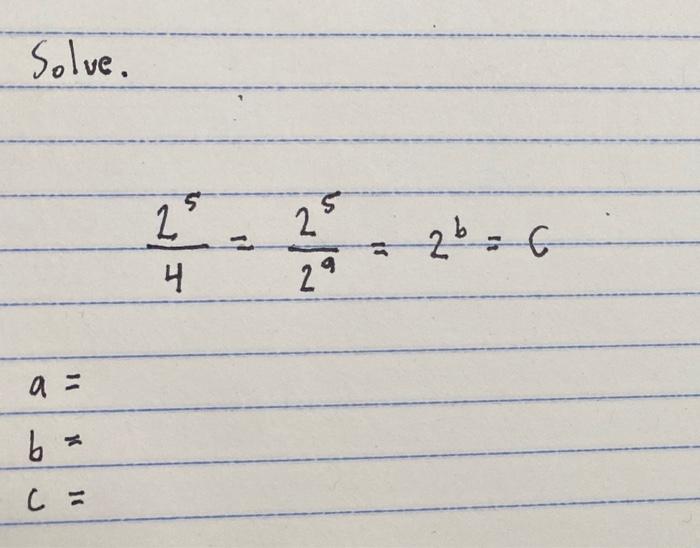 Solve.
2^5/4 = 2^5/2^a = 2^b = C
a =
b =
c =